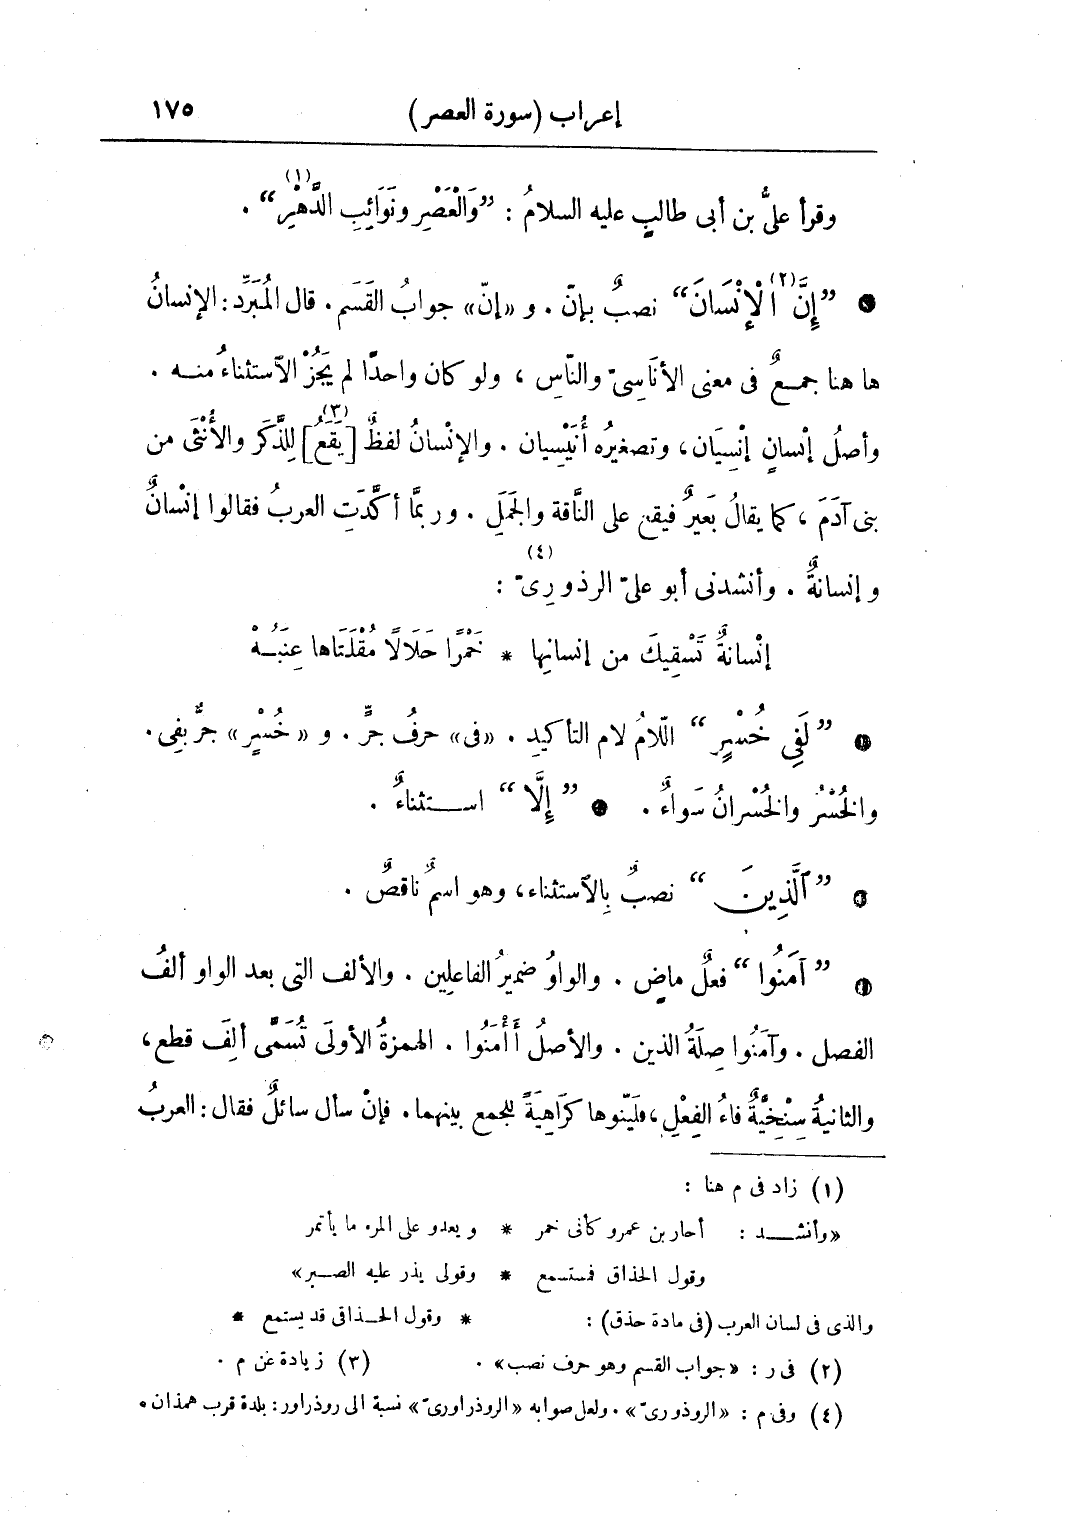 إعراب (سورة العصر) ١٧٥
وقرأ علىُّ بن أبى طالبٍ عليه السلامُ : ”وَالْعَصْرِ ونَوَائِبِ الدَّهْرِ(١)“ .
● ”إِنَّ(٢) الْإِنْسَانَ“ نصبٌ بإنّ . و «إنّ» جوابُ القَسَم . قال المُبَرِّد : الإنسانُ
ها هنا جمعٌ فى معنى الأنَاسِىّ والنّاسِ ، ولو كان واحدًا لم يَجُزْ الٱستثناءُ منه .
وأصلُ إنْسانٍ إنْسِيَان ، وتصغيرُه أُنَيْسِيان . والإنْسانُ لفظٌ [يَقَعُ](٣) لِلذَّكَرِ والأُنْثَى من
بنى آدَمَ ، كما يقالُ بَعيرٌ فيقع على النَّاقة والجَمَلِ . وربمَّا أكَّدَتِ العربُ فقالوا إنْسانٌ
وإنسانةٌ . وأنشدنى أبو علىّ الرذورِىّ(٤) :
إنْسانةٌ تَسْقِيكَ من إنسانِها * خَمْرًا حَلَالًا مُقْلَتَاها عِنَبَهْ
● ”لَفِى خُسْرٍ“ الّلامُ لام التأكيدِ . «فى» حرفُ جرٍّ . و «خُسْرٍ» جرٌّ بِفِى .
والخُسْرُ والخُسْرانُ سَواءٌ . ● ”إِلَّا“ استثناءٌ .
● ”ٱلَّذِينَ“ نصبٌ بِالٱستثناء، وهو اسمٌ ناقصٌ .
● ”آمَنُوا“ فعلٌ ماضٍ . والواوُ ضميرُ الفاعلين . والألف التى بعد الواو ألفُ
الفصل . وآمَنُوا صِلَةُ الذين . والأصلُ أَأْمَنُوا . الهمزةُ الأولَى تُسَمَّى ألِفَ قطع،
والثانيةُ سِنْخِيَّةٌ فاءُ الفِعْلِ، فلَيّنوها كَرَاهِيَةً للجمع بينهما. فإنْ سأل سائلٌ فقال : العربُ
(١) زاد فى م هنا :
«وأنشد : أحار بن عمرو كأنى خمر * ويعدو على المره ما يأتمر
وقول الحذاق فمستسمع * وقولى يذر عليه الصبر»
والذى فى لسان العرب (فى مادة حذق) : * وقول الحذاقى قد يستمع *
(٢) فى ر : «جواب القسم وهو حرف نصب» . (٣) زيادة عن م .
(٤) وفى م : «الروذورىّ» . ولعل صوابه «الروذراورىّ» نسبة الى روذراور : بلدة قرب همذان .